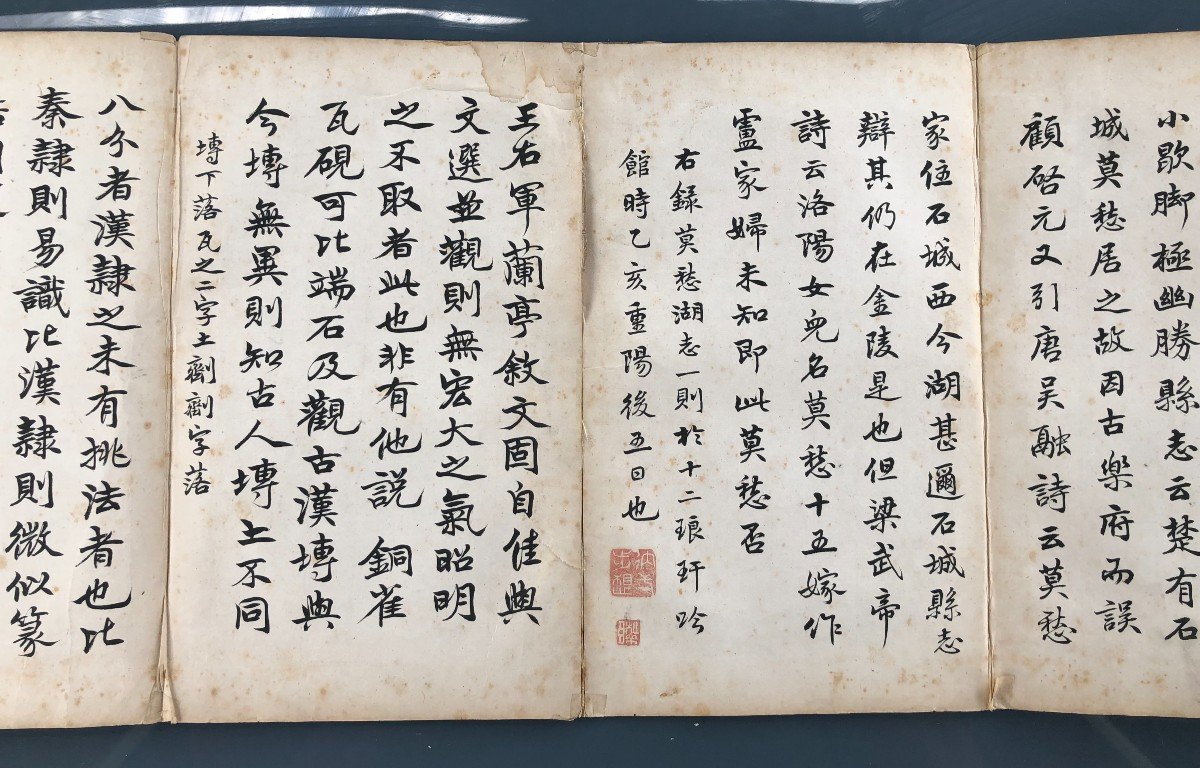 小歇脚極幽勝縣志云楚有石
城莫愁居之故因古樂府而誤
顧啓元又引唐吴融詩云莫愁
家住石城西今湖甚邇石城縣志
辯其仍在金陵是也但梁武帝
詩云洛陽女兒名莫愁十五嫁作
盧家婦未知即此莫愁否
右録莫愁湖志一則於十二琅玕吟
館時乙亥重陽後五日也
王右軍蘭亭敘文固自佳與
文選並觀則無宏大之氣昭明
之不取者此也非有他説 銅雀
瓦硯可比端石及觀古漢塼與
今塼無異則知古人塼土不同
塼下落瓦之二字土劑劑字落
八分者漢隷之未有挑法者也比
秦隷則易識比漢隷則微似篆